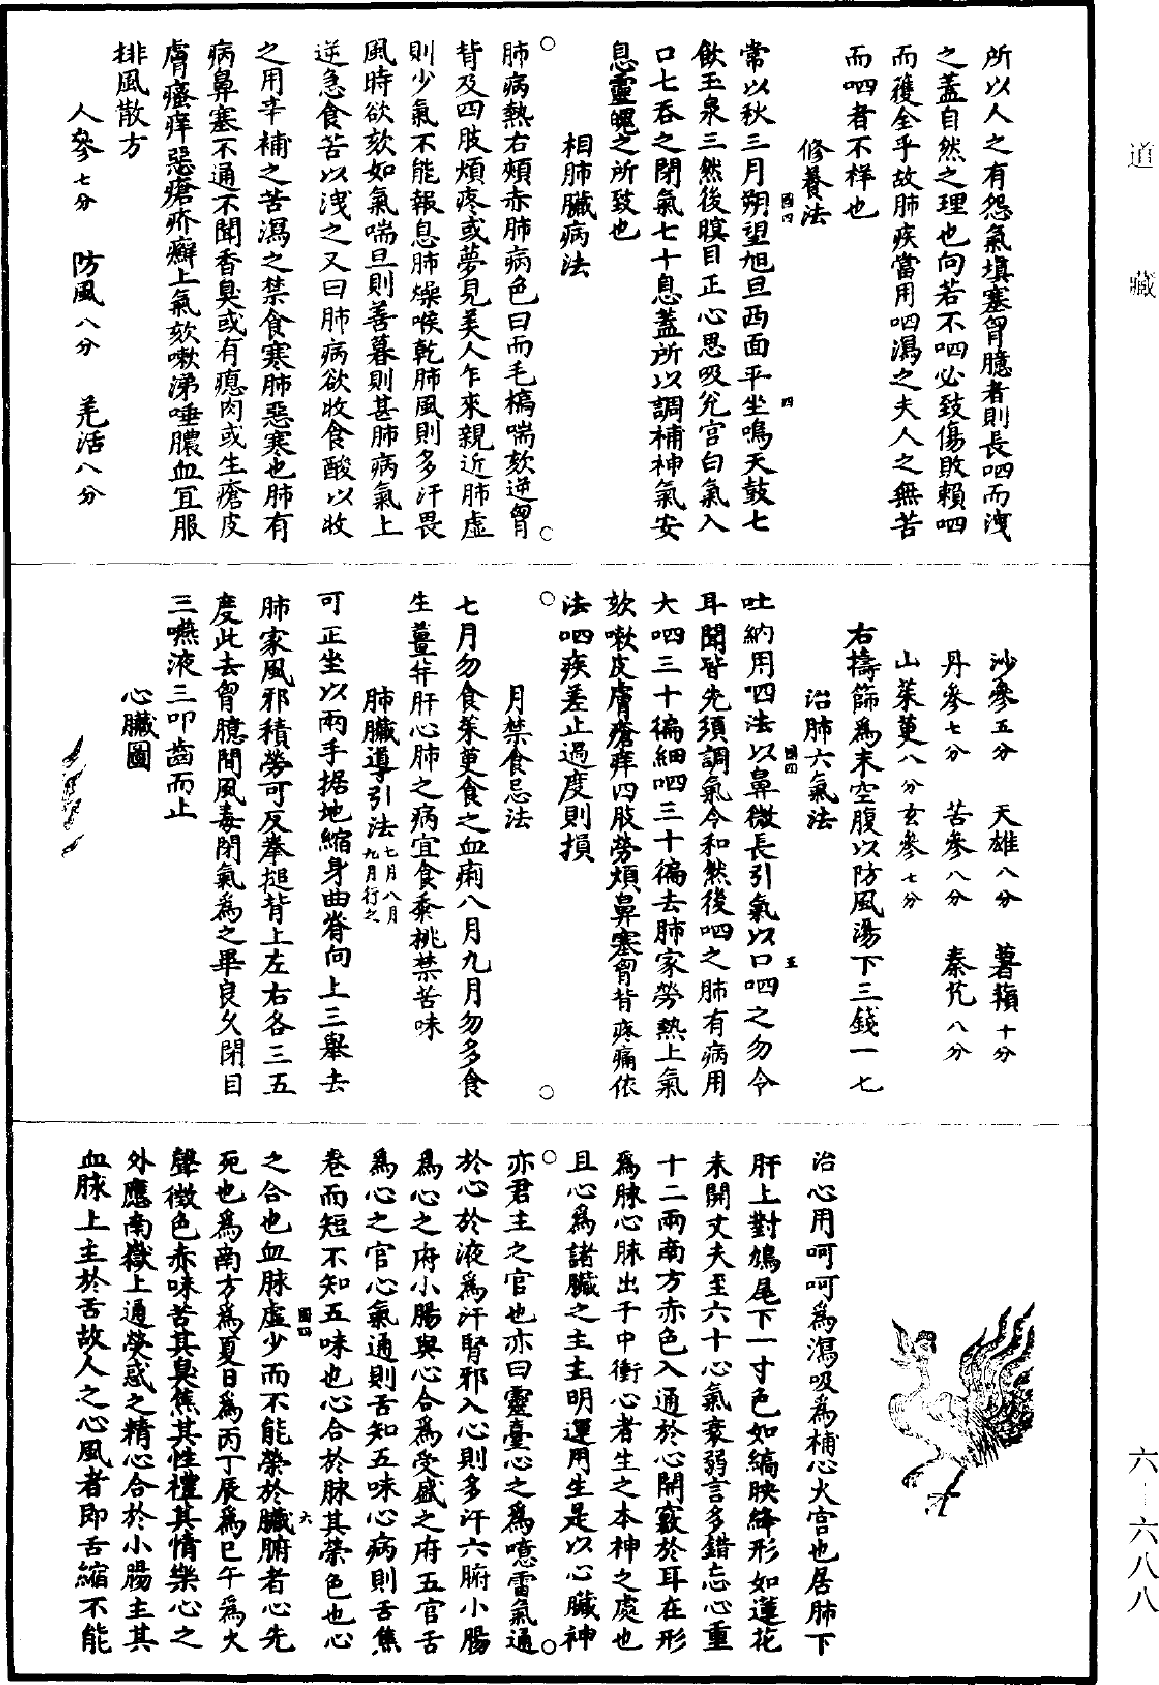 道藏
所以人之有怨氣塡塞胷臆者則長呬而洩
之蓋自然之理也向若不呬必致傷敗賴呬
而獲全乎故肺疾當用呬瀉之夫人之無苦
而呬者不祥也
修養法
常以秋三月朔望旭旦西面平坐鳴天鼓七
飲玉泉三然後瞑目正心思吸兊宮白氣入
口七吞之閉氣七十息蓋所以調補神氣安
息靈魄之所致也
相肺臟病法
肺病熱右頰赤肺病色白而毛槁喘欬逆胷
背及四肢煩疼或夢見美人乍來親近肺虛
則少氣不能報息肺燥喉乾肺風則多汗畏
風時欲欬如氣喘旦則善暮則甚肺病氣上
逆急食苦以洩之又曰肺病欲收食酸以收
之用辛補之苦瀉之禁食寒肺惡寒也肺有
病鼻塞不通不聞香臭或有瘜肉或生瘡皮
膚瘙痒惡瘡疥癬上氣欬嗽涕唾膿血宜服
排風散方
人參七分 防風八分 羌活八分
沙參五分 天雄八分 薯蕷十分
丹參七分 苦參八分 秦艽八分
山茱萸八分 玄參七分
右擣篩爲末空腹以防風湯下三錢一七
治肺六氣法
吐納用呬法以鼻微長引氣以口呬之勿令
耳聞皆先須調氣令和然後呬之肺有病用
大呬三十徧細呬三十徧去肺家勞熱上氣
欬嗽皮膚瘡痒四肢勞煩鼻塞胷背疼痛依
法呬疾差止過度則損
月禁食忌法
七月勿食茱萸食之血痢八月九月勿多食
生薑并肝心肺之病宜食黍桃禁苦味
肺臟導引法七月八月九月行之
可正坐以兩手据地縮身曲脊向上三舉去
肺家風邪積勞可反拳搥背上左右各三五
度此去胷臆間風毒閉氣爲之畢良久閉目
三嚥液三叩齒而止
心臟圖
治心用呵呵爲瀉吸爲補心火宮也居肺下
肝上對鳩尾下一寸色如縞映絳形如蓮花
未開丈夫至六十心氣衰弱言多錯忘心重
十二兩南方赤色入通於心開竅於耳在形
爲脉心脉出于中衝心者生之本神之處也
且心爲諸臟之主主明運用生是以心臟神
亦君主之官也亦曰靈臺心之爲噫雷氣通
於心於液爲汗腎邪入心則多汗六腑小腸
爲心之府小腸與心合爲受盛之府五官舌
爲心之官心氣通則舌知五味心病則舌焦
卷而短不知五味也心合於脉其榮色也心
之合也血脉虛少而不能榮於臟腑者心先
死也爲南方爲夏日爲丙丁辰爲巳午爲火
聲徵色赤味苦其臭焦其性禮其情樂心之
外應南嶽上通熒惑之精心合於小腸主其
血脉上主於舌故人之心風者即舌縮不能
六一六八八